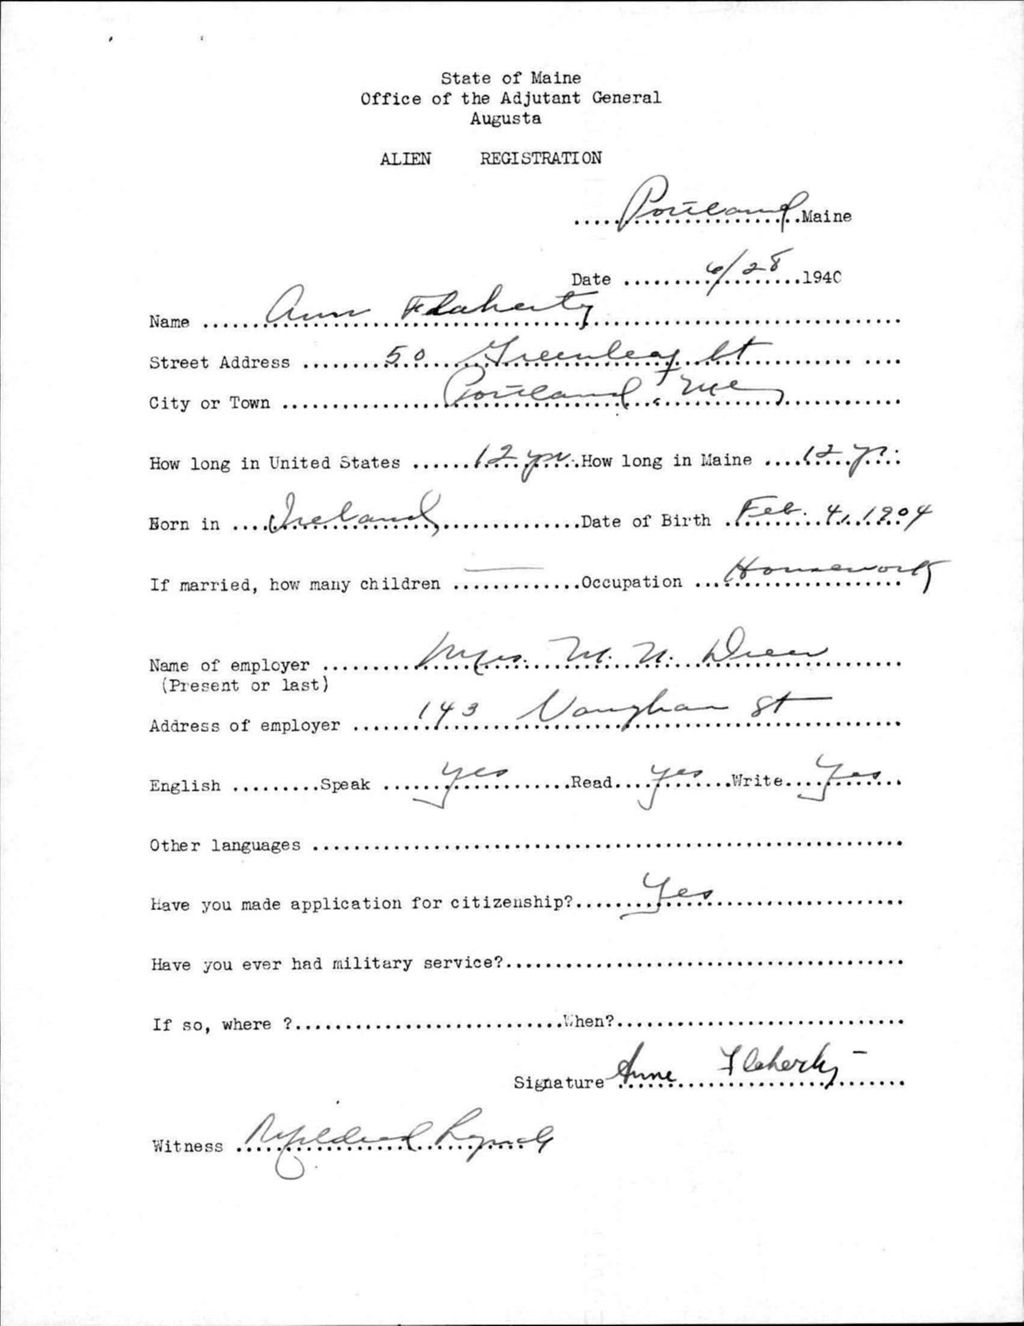 State of Maine
Office of the Adjutant General
Augusta
ALIEN REGISTRATION
.....Portland..Maine
Date ........6/28.......1940
Name ......Ann Flaherty......
Street Address ........50 Greenleaf St......
City or Town ......Portland, Me......
How long in United States ......12 yr...How long in Maine ....12 yr..
Born in ....Ireland,......Date of Birth .Feb. 4, 1904
If married, how many children ....—....Occupation ...Housework
Name of employer ........Mrs. M. N. Drew......
(Present or last)
Address of employer ......143 Vaughan St......
English .........Speak ......yes......Read....yes....Write....Yes....
Other languages ......
Have you made application for citizenship?......Yes......
Have you ever had military service?......
If so, where ?......When?......
Signature Anne Flaherty
Witness Mildred Lynch